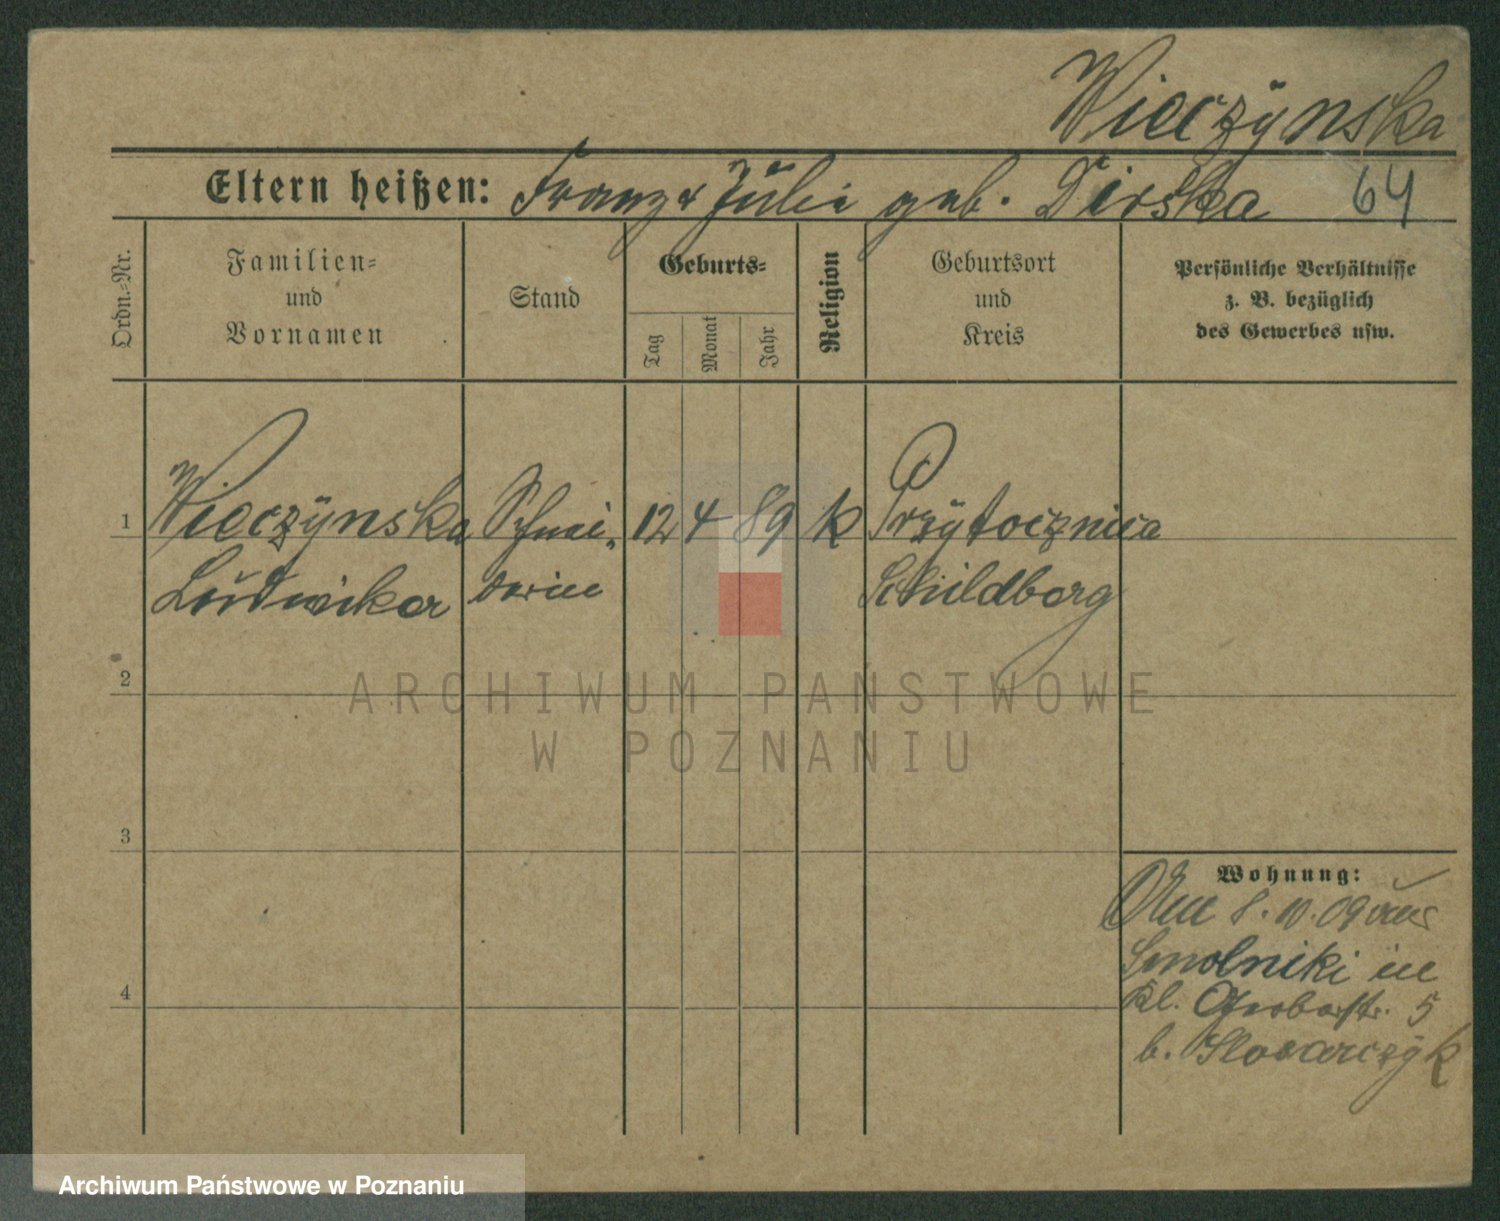 Wieczÿnska
Eltern heißen: Franz u Julie geb. Dirska 64
Ordn.-Nr.
Familien-
und
Vornamen
Stand
Geburts-
Tag
Monat
Jahr
Religion
Geburtsort
und
Kreis
Persönliche Verhältnisse
z. B. bezüglich
des Gewerbes usw.
1 Wieczÿnska Schnei- 12 4 89 k Przÿtocznica
Ludwika derin Schildberg
2
ARCHIWUM PAŃSTWOWE
W POZNANIU
3
Wohnung:
8. 10. 09 aus
Smolniki in
4
Kl. Gerberstr. 5
b.
Archiwum Państwowe w Poznaniu